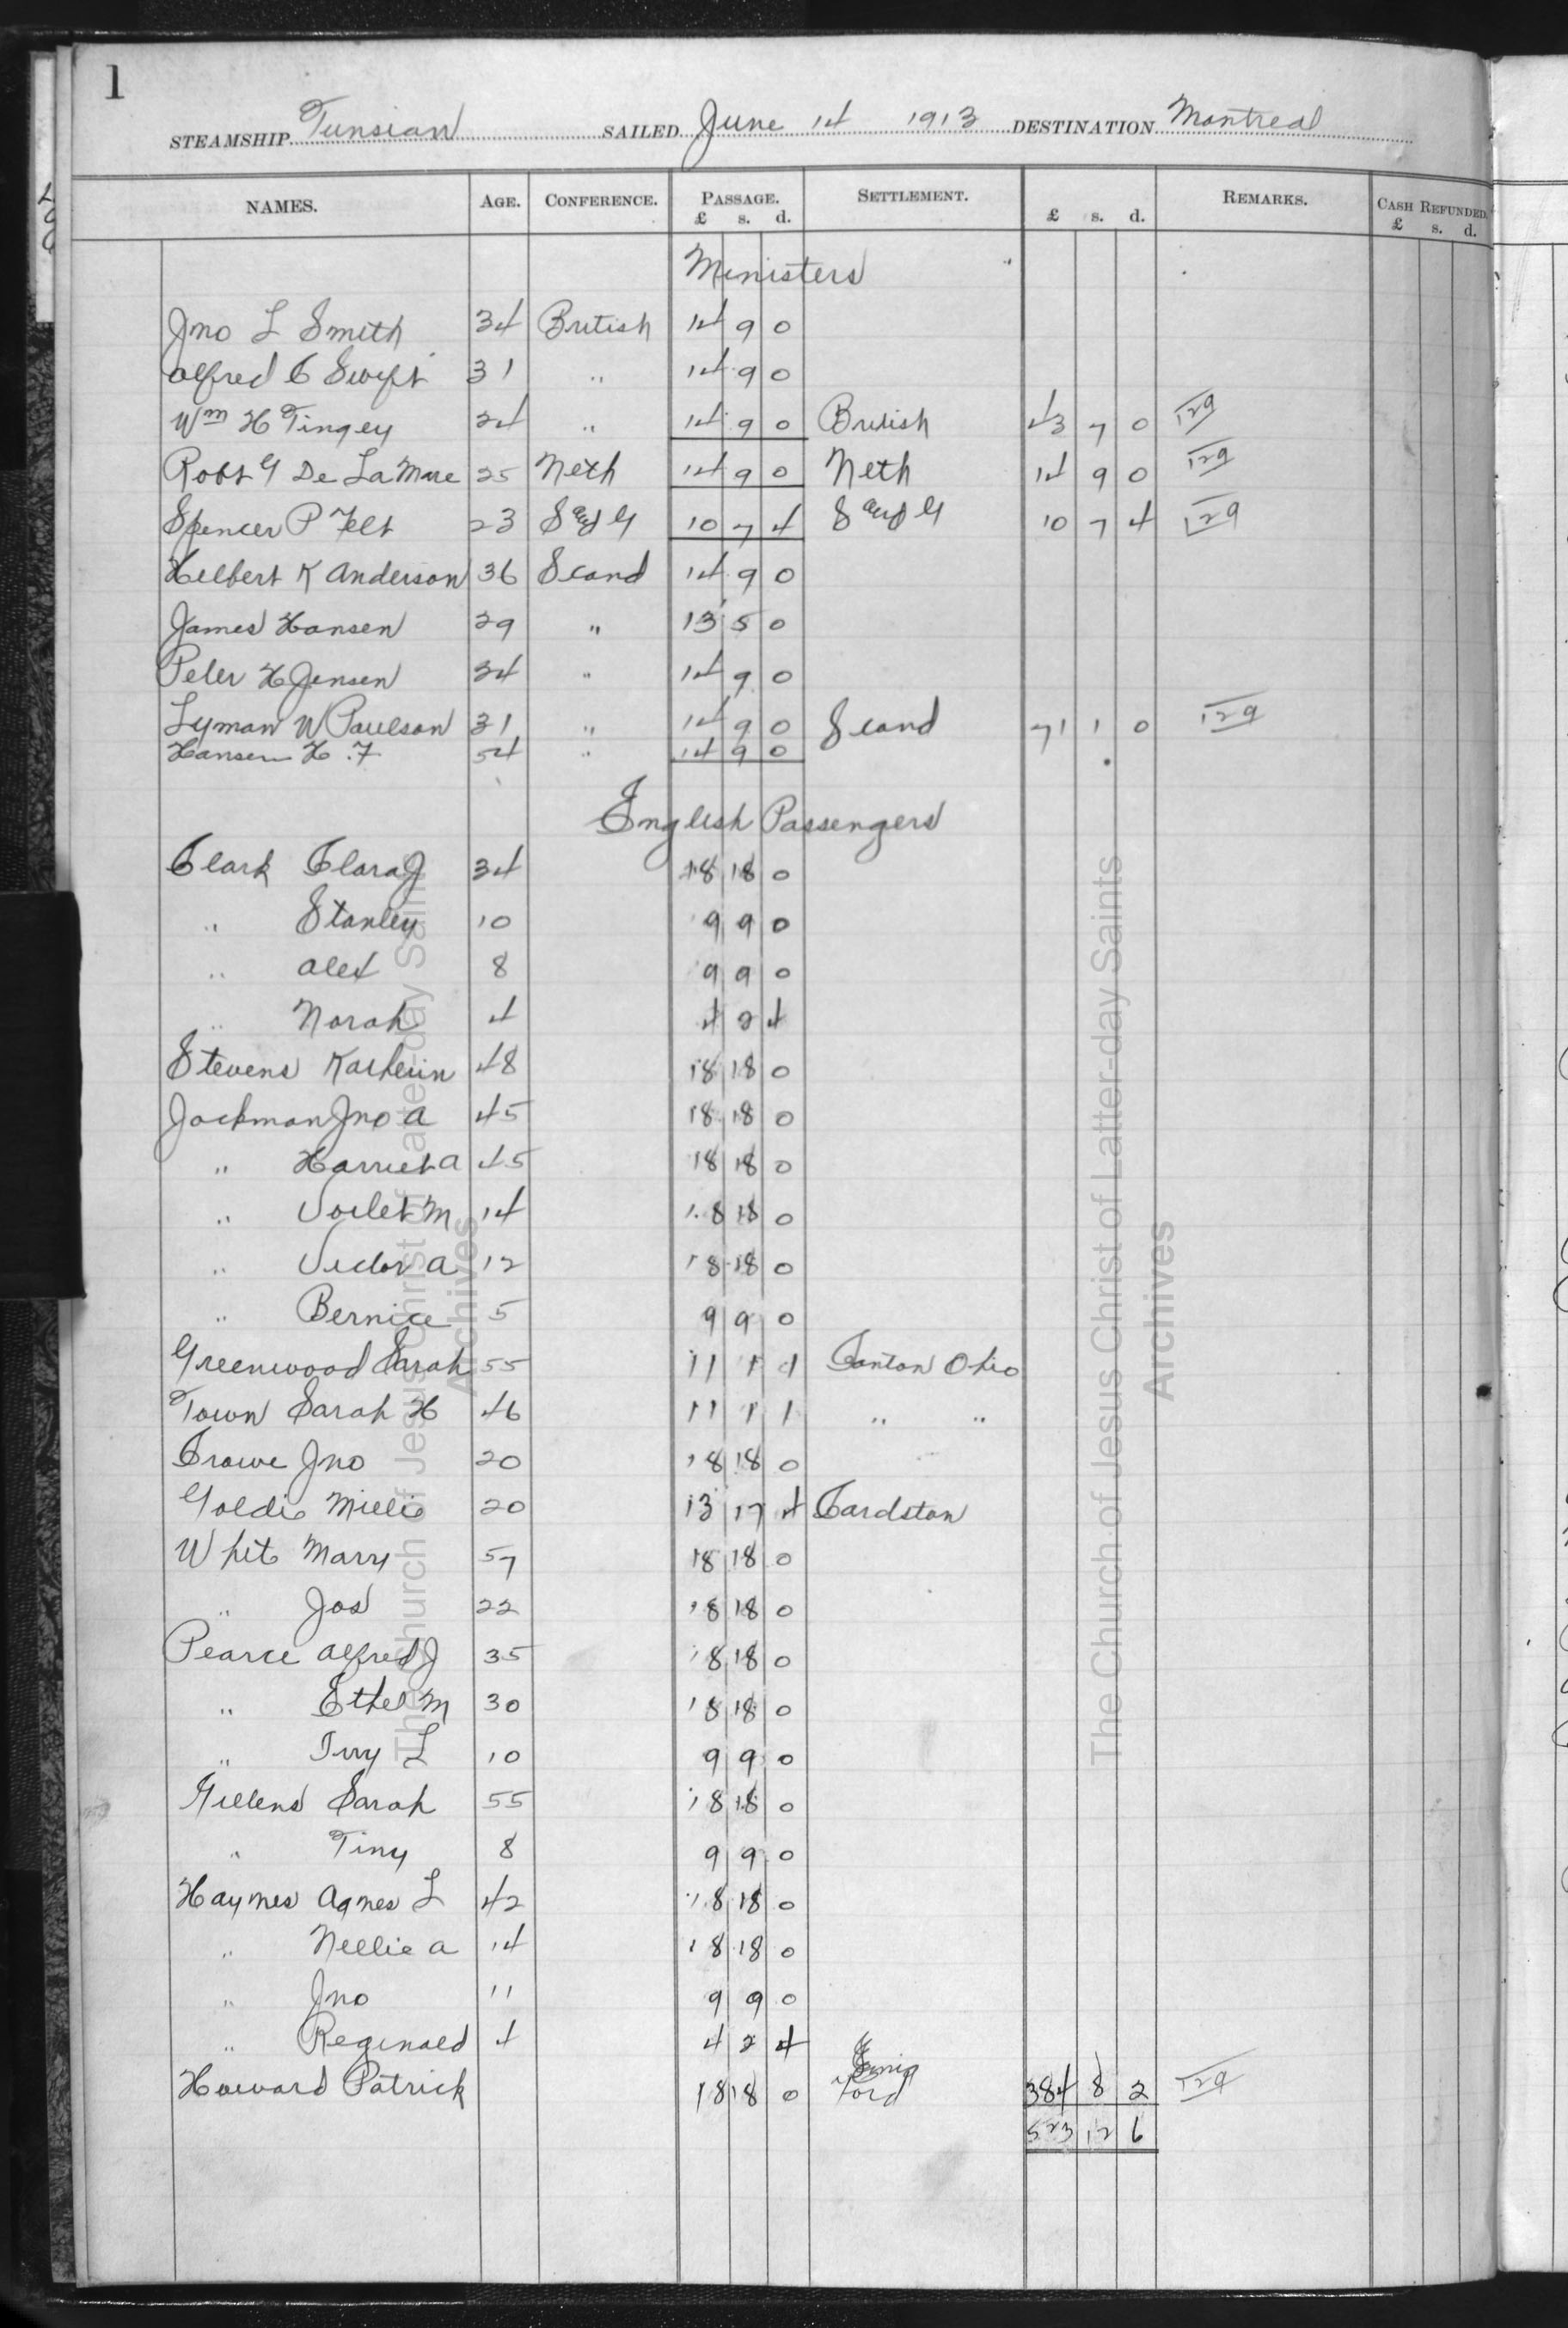 1
STEAMSHIP Tunsian SAILED June 14 1913 DESTINATION Montreal
NAMES. AGE. CONFERENCE. PASSAGE. £ s. d. SETTLEMENT. £ s. d. REMARKS. CASH REFUNDED. £ s. d.
Ministers
Jno L Smith 34 British 14 9 0
Alfred C Swift 31 " 14 9 0
Wm H Tingey 24 " 14 9 0 British 43 7 0 129
Robt G De La Mare 25 Neth 14 9 0 Neth 14 9 0 129
Spencer P Felt 23 S and G 10 7 4 S and G 10 7 4 129
Helbert K Anderson 36 Scand 14 9 0
James Hansen 29 " 13 5 0
Peter H Jensen 34 " 14 9 0
Lyman W Paulson 31 " 14 9 0 Scand 71 1 0 129
Hansen H. F 54 " 14 9 0
English Passengers
Clark Clara J 34 18 18 0
" Stanley 10 9 9 0
" Alex 8 9 9 0
" Norah 4 4 2 4
Stevens Katherin 48 18 18 0
Jackman Jno A 45 18 18 0
" Harriet A 45 18 18 0
" Voilet M 14 18 18 0
" Victor A 12 18 18 0
" Bernice 5 9 9 0
Greenwood Sarah 55 11 1 1 Canton Ohio
Town Sarah H 46 11 1 1 " "
Crowe Jno 20 18 18 0
Goldie Millie 20 13 17 4 Cardston
Whit Mary 57 18 18 0
" Jos 22 18 18 0
Pearce Alfred J 35 18 18 0
" Ethel M 30 18 18 0
" Ivy L 10 9 9 0
Gillens Sarah 55 18 18 0
" Tiny 8 9 9 0
Haymes Agnes L 42 18 18 0
" Nellie A 14 18 18 0
" Jno 11 9 9 0
" Reginald 4 4 2 4
Howard Patrick 18 18 0 Emig Ford 384 8 2 129
523 12 6
The Church of Jesus Christ of Latter-day Saints
Archives
The Church of Jesus Christ of Latter-day Saints
Archives